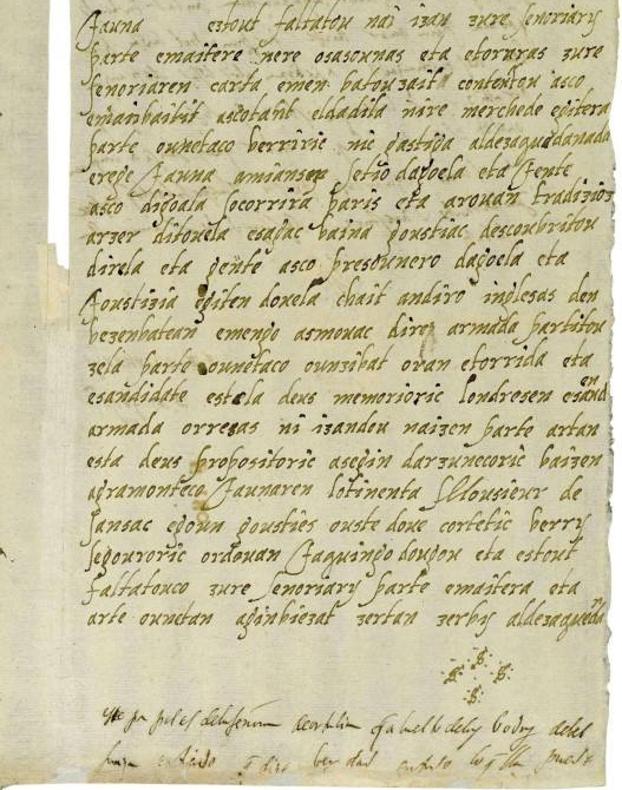 Jauna eztout faltatou nai izan zure senoriary
parte emaitere nere osasounas eta etorraras zure
senoriaren carta emen batouzait contentou asco
emanbaitit ascotant eldadila nire merchede egitera
parte ounetaco berriric nic gastiga aldezaquedanada
erege Jauna amiansen setio dagoela eta Jente
asco digoala socorrira paris eta arouan tradizioz
arzer ditouela esagac baina goustiac descoubritou
direla eta gente asco presounero dagoela eta
Joustizia egiten douela chait andiro inglesas den
bezenbatean emengo asmouac direz armada partitou
zela parte ounetaco ounzibat oran etorrida eta
esandidate estela deus memorioric londresen esanden
armada orregas ni izandou naizen parte artan
esta deus propositoric asegin darzunecoric baizen
agramonteco Jaunaren lotinenta Mousieur de
Jansac egoun gousties ouste doue cortetic berry
segouroric ordouan Jaquingo dougou eta estout
faltatouco zure senoriary parte emaitera eta
arte ounetan aginbiezat zertan zerby aldezaquedan